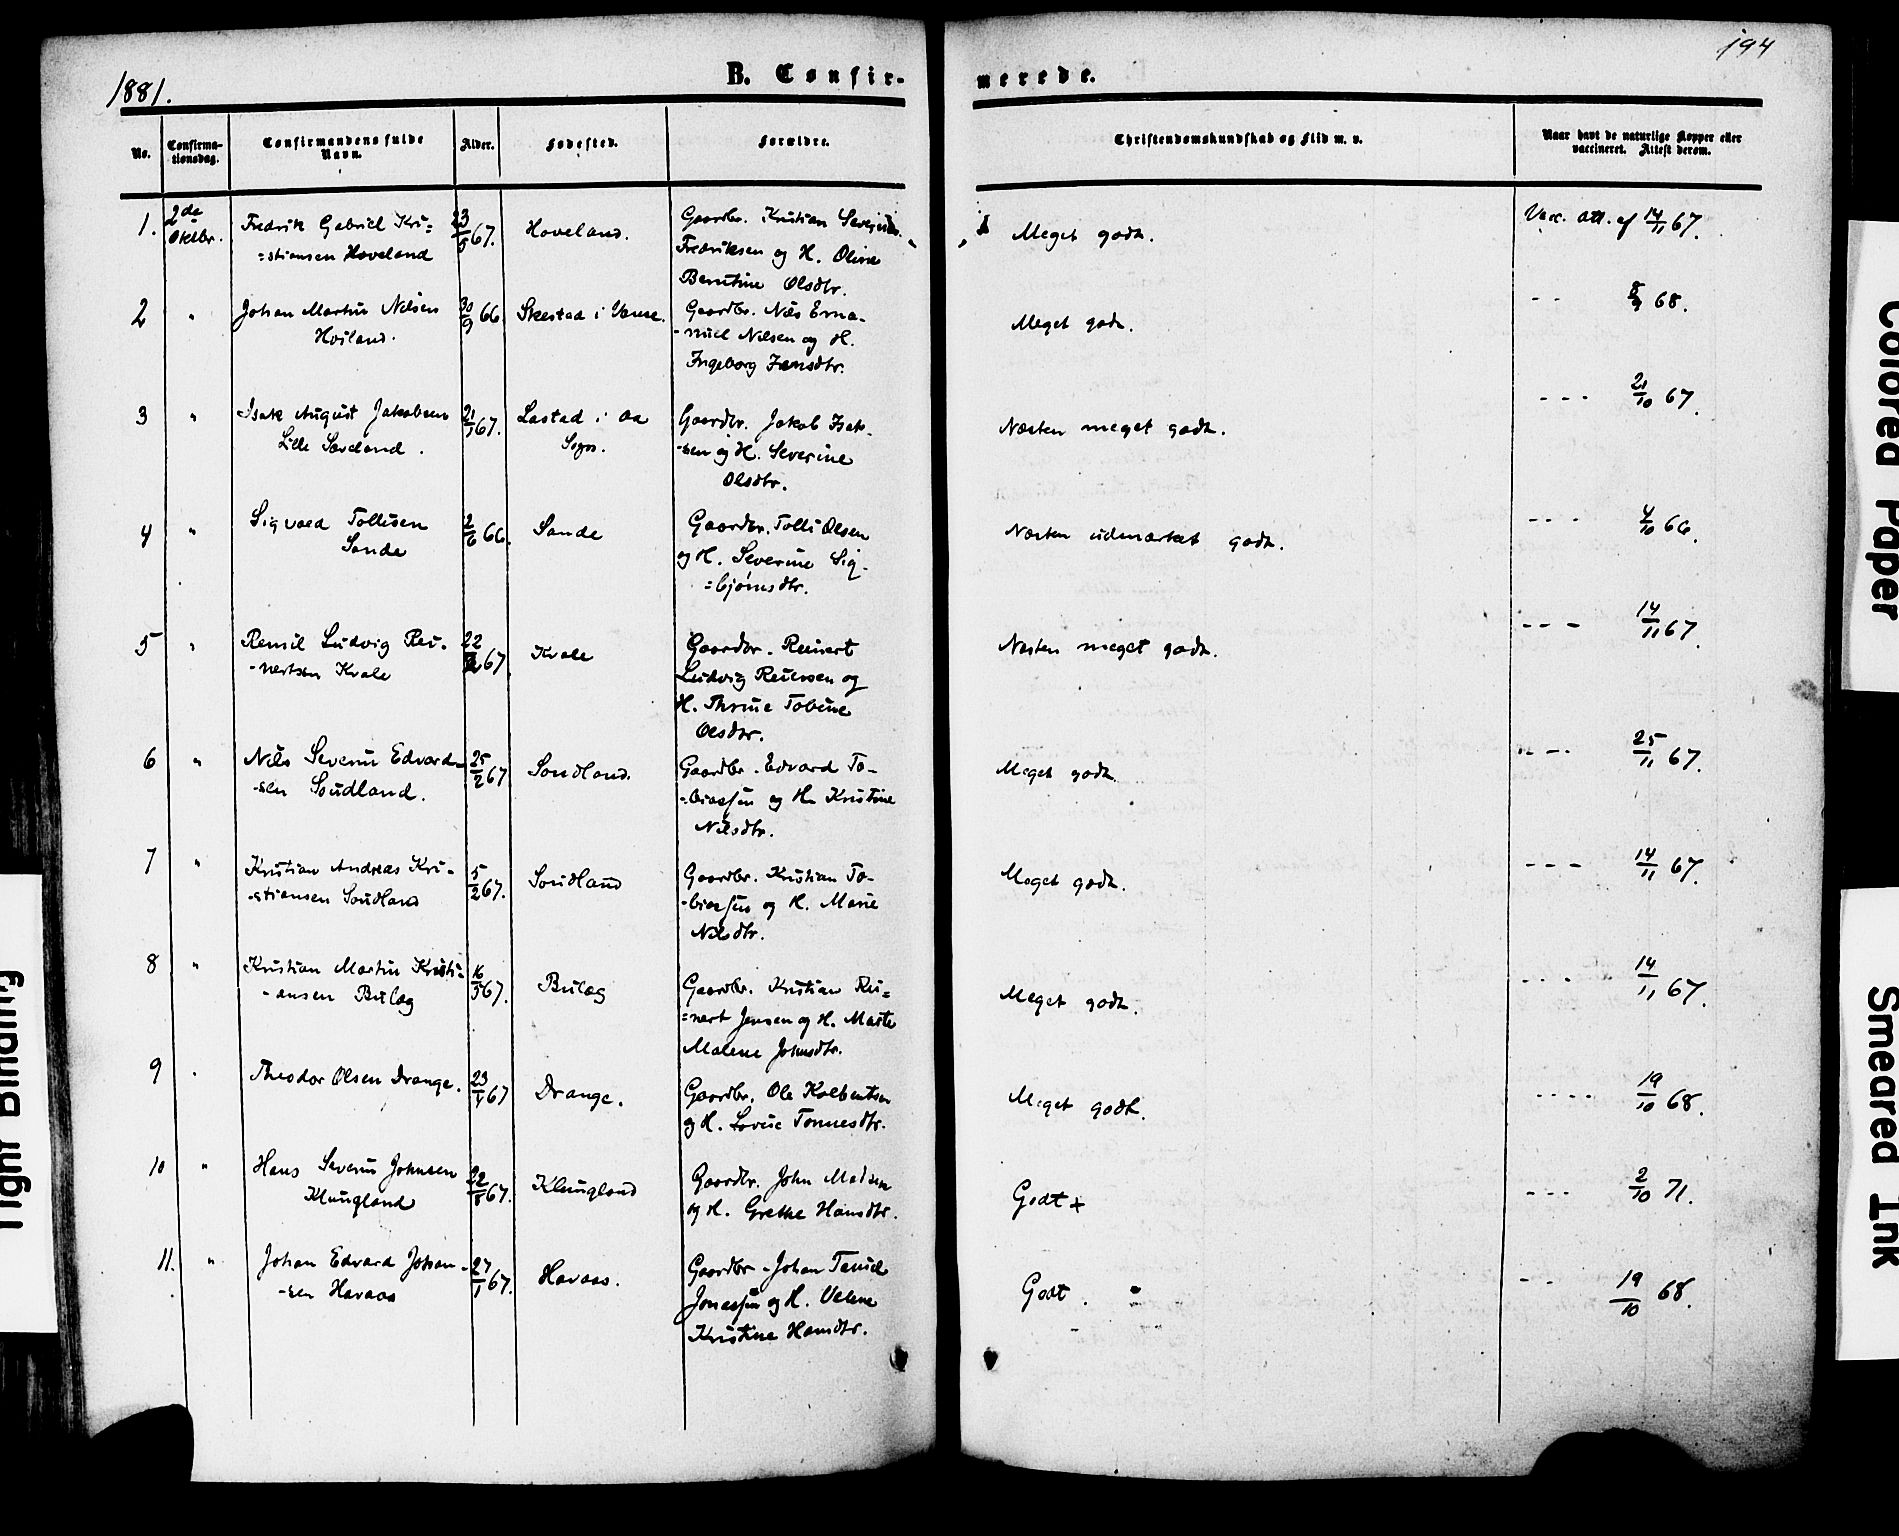 194
1881.
B. Confir-
merede.
No.
Confirma-
tionsdag.
Confirmandens fulde
Navn.
Alder.
Fødested.
Forældre.
Christendomskundskab og Flid m. v.
Naar havt de naturlige Kopper eller
vaccineret. Attest derom.
1. 2de Oktbr. Fredrik Gabriel Kri=
=stiansen Hoveland
23/5 67. Hoveland.
Gaardbr. Kristian Severin
Fredriksen og H. Oline
Berntine Olsdtr.
Meget godt. Vacc. att. af 14/11 67.
2 " Johan Martin Nilsen
Hoiland.
30/9 66 Skestad i Vanse.
Gaardbr. Nils Ema-
-nuel Nilsen og H.
Ingeborg Jensdtr.
Meget godt. - - 8/9 68.
3 " Isak August Jakobsen
Lille Saveland.
21/1 67. Lastad i Aa
Sogn.
Gaardbr. Jakob Isak-
-sen og H. Severine
Olsdtr.
Næsten meget godt. - - - 21/10 67.
4 " Sigvard Tollisen
Sande
2/6 66. Sande
Gaardbr. Tolli Olsen
og H. Severine Sig-
=bjørnsdtr.
Næsten udmærket godt. - - - 4/10 66.
5 " Remil Ludvig Rei-
-nertsen Kvale
22 67. Kvale
Gaardbr. Reinert
Ludvig Reiersen og
H. Thrine Tobine
Olsdtr.
Næsten meget godt. - - - 14/11 67.
6 " Nils Severin Edvard-
-sen Soudland.
25/2 67 Soudland.
Gaardbr. Edvard To-
-biassen og H. Kristine
Nilsdtr.
Meget godt. - - 25/11 67.
7 " Kristian Andreas Kri-
-stiansen Soudland
5/2 67. Soudland
Gaardbr. Kristian To-
-biassen og H. Marie
Nilsdtr.
Meget godt. - - - 14/11 67.
8 " Kristian Martin Kristi-
-ansen Bulæg
16/3 67. Bulæg
Gaardbr. Kristian Rei=
=nert Jensen og H. Marte
Malene Johnsdtr.
Meget godt. - - - 14/11 67.
9 " Theodor Olsen Drange.
23 67 Drange.
Gaardbr. Ole Kolbentsen
og H. Lovise Tønnesdtr.
Meget godt. - - - - 19/10 68.
10 " Hans Severin Johnsen
Klungland
22/8 67. Klungland
Gaardbr. John Madsen
og H. Grethe Hansdtr.
Godt + - - - 2/10 71.
11. " Johan Edvard Johan-
-sen Havaas
27/1 67. Havaas.
Gaardbr. Johan Taniel
Jonassen og H. Velene
Kristine Hansdtr.
Godt. " - - 19/10 68.
Colored Paper
Smeared Ink
Tight Binding